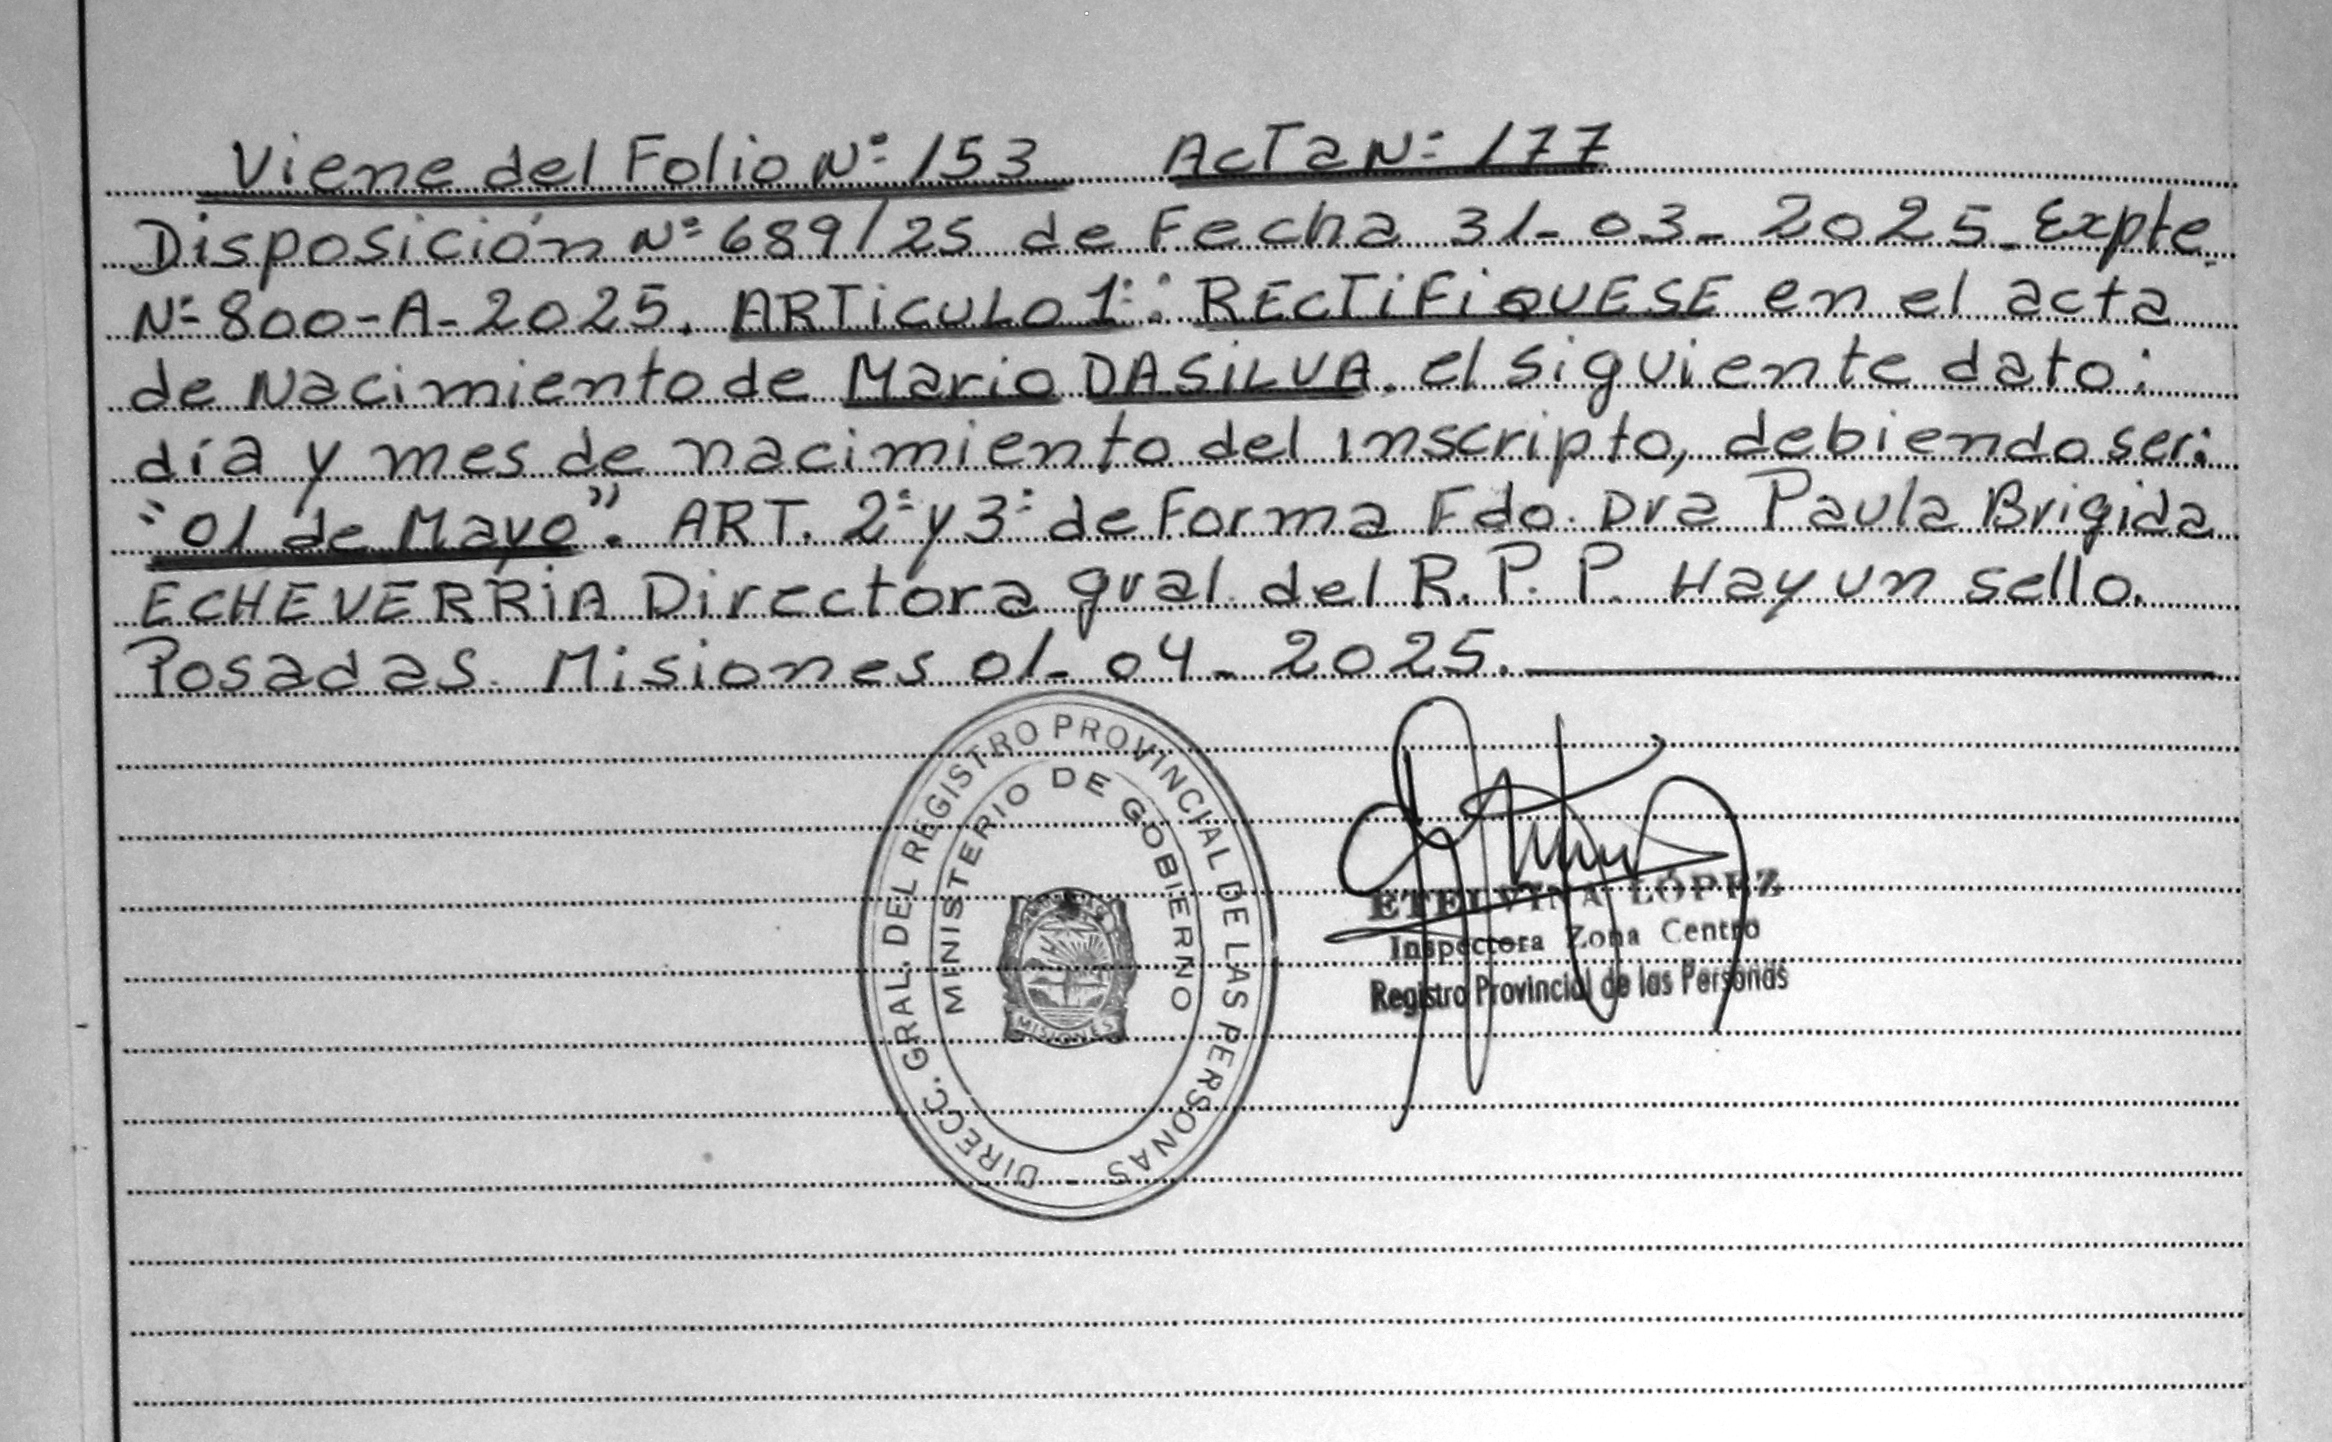 Viene del Folio Nº 153 Acta Nº 177
Disposición Nº 689/25 de Fecha 31-03-2025-Expte.
Nº 800-A-2025. ARTiCULO 1º: RECTiFiQUESE en el acta
de Nacimiento de Mario DASiLVA. el siguiente dato:
día y mes de nacimiento del inscripto, debiendo ser:
"01 de Mayo". ART. 2º y 3º de Forma Fdo. Dra Paula Brigida
ECHEVERRÍA Directora gral del R.P.P. Hay un sello.
Posadas. Misiones 01-04-2025.
DIRECC. GRAL. DEL REGISTRO PROVINCIAL DE LAS PERSONAS -
MINISTERIO DE GOBIERNO
MISIONES
ETELVINA LÓPEZ
Inspectora Zona Centro
Registro Provincial de las Personas